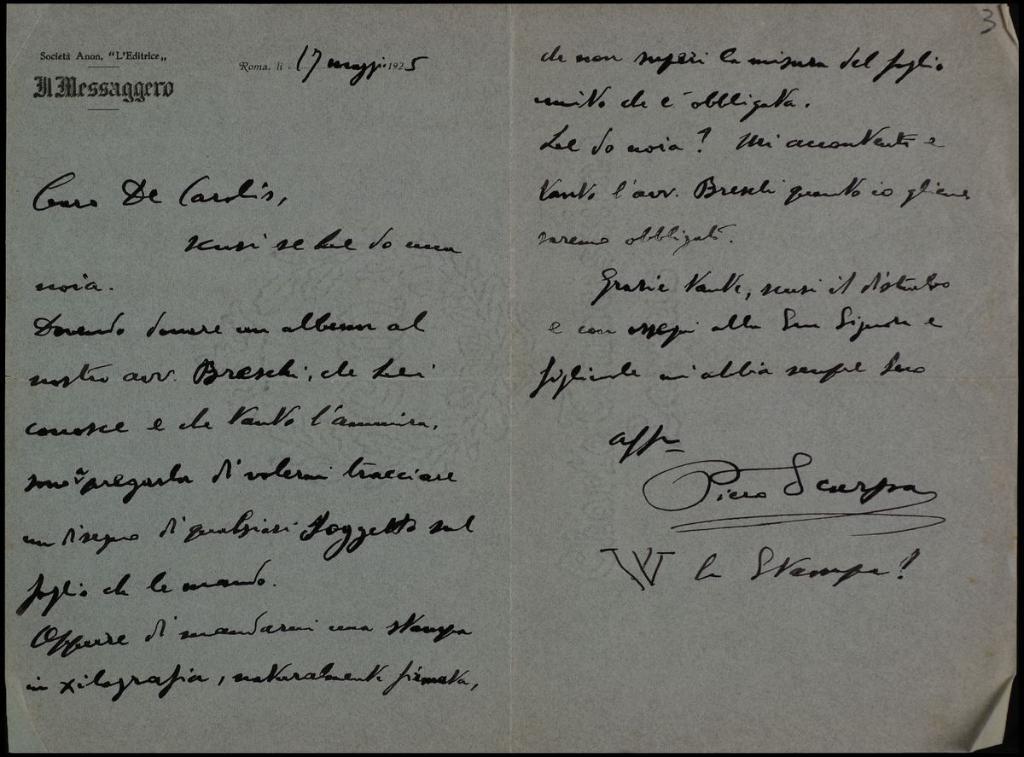 Società Anon. "L'Editrice"
Il Messaggero
Roma, li 17 maggio 1925
Caro De Carolis,
scusi se Le do una
noia.
Dovendo donare un album al
nostro avv. Breschi, che Lei
conosce e che tanto l'ammira,
sono a pregarla di volermi tracciare
un disegno di qualsiasi soggetto sul
foglio che le mando.
Oppure di mandarmi una stampa
in xilografia, naturalmente firmata,
3
che non superi la misura del foglio
unito che è obbligata.
Le do noia? Mi accontenti e
tanto l'avv. Breschi quanto io gliene
saremo obbligati.
Grazie tante, scusi il disturbo
e con ossequi alla Sua Signora e
figliuole mi abbia sempre Suo
aff.
Piero Scarpa
W la Stampa!